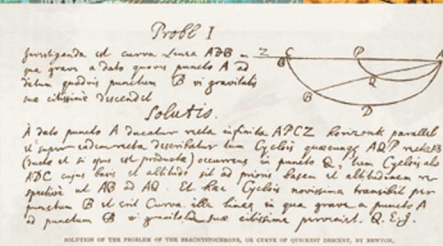 Probl I
Investiganda est curva Linea ADB in
qua grave a dato quovis puncto A ad
datum quodvis punctum B vi gravitatis
suæ citissime descendet
Z C P A
B Q
B D
Solutio.
A dato puncto A ducatur recta infinita APCZ horizonti parallela
et super eadem recta describatur tum Cyclois quæcunque AQP rectæ AB
(ducta et si opus est producta) occurrens in puncto Q, tum Cyclois alia
ADC cujus basis et altitudo sit ad prioris basem et altitudinem re-
spective ut AB ad AQ. Et hæc Cyclois novissima transibit per
punctum B et erit Curva illa linea in qua grave a puncto A
ad punctum B vi gravitatis suæ citissime perveniet. Q.E.I.
SOLUTION OF THE PROBLEM OF THE BRACHISTOCHRONE, OR CURVE OF QUICKEST DESCENT, BY NEWTON.